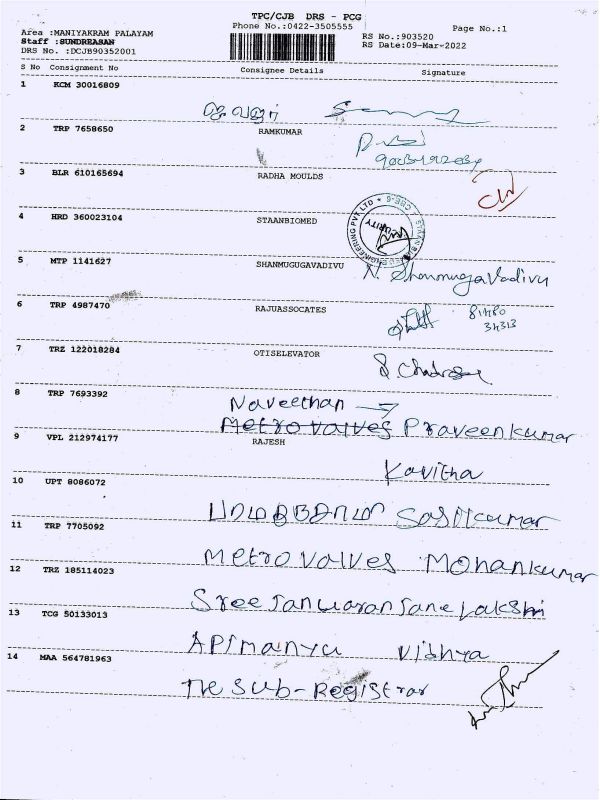 TPC/CJB DRS - PCG
Phone No.:0422-3505555
Page No.:1
Area :MANIYAKRAM PALAYAM
RS No.:903520
Staff :SUNDREASAN
RS Date:09-Mar-2022
DRS No. :DCJB90352001
S No Consignment No Consignee Details Signature
1 KCM 30016809
2 TRP 7658650 RAMKUMAR
3 BLR 610165694 RADHA MOULDS
4 HRD 360023104 STAANBIOMED
5 MTP 1141627 SHANMUGUGAVADIVU N. Shanmugavadivu
6 TRP 4987470 RAJUASSOCATES
7 TRZ 122018284 OTISELEVATOR
8 TRP 7693392 Naveethan
Metro valves Praveenkumar
9 VPL 212974177 RAJESH
Kavitha
10 UPT 8086072
Sasikumar
11 TRP 7705092
Metro valves Mohankumar
12 TRZ 185114023
Sree
13 TCG 50133013
Apimanyu Vidhya
14 MAA 564781963
The Sub-Registrar